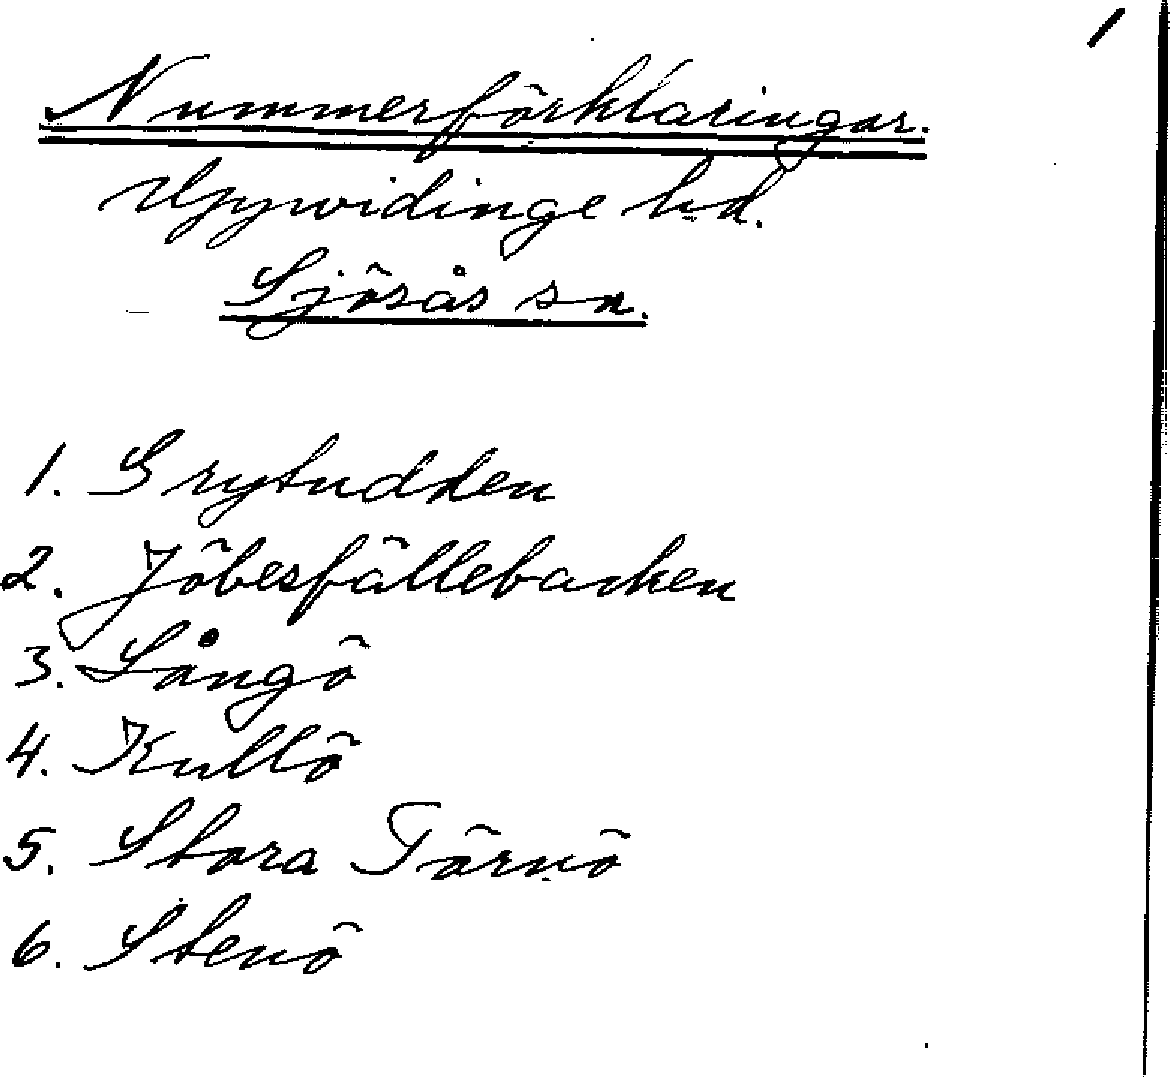 1
Nummerförklaringar.
Upvidinge hd.
Sjösås sn.
1. Grytudden
2. Jöbesfällebacken
3. Långö
4. Kullö
5. Stora Törnö
6. Stenö